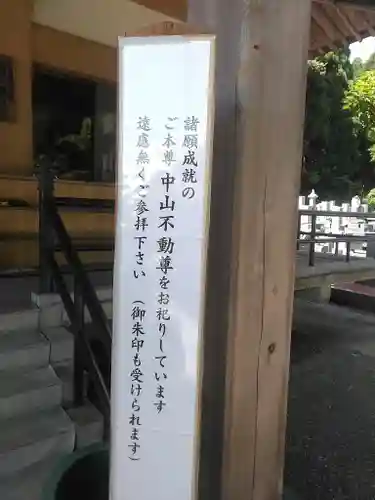 諸願成就の
ご本尊 中山不動尊をお祀りしています
遠慮無くご参拝下さい （御朱印も受けられます）